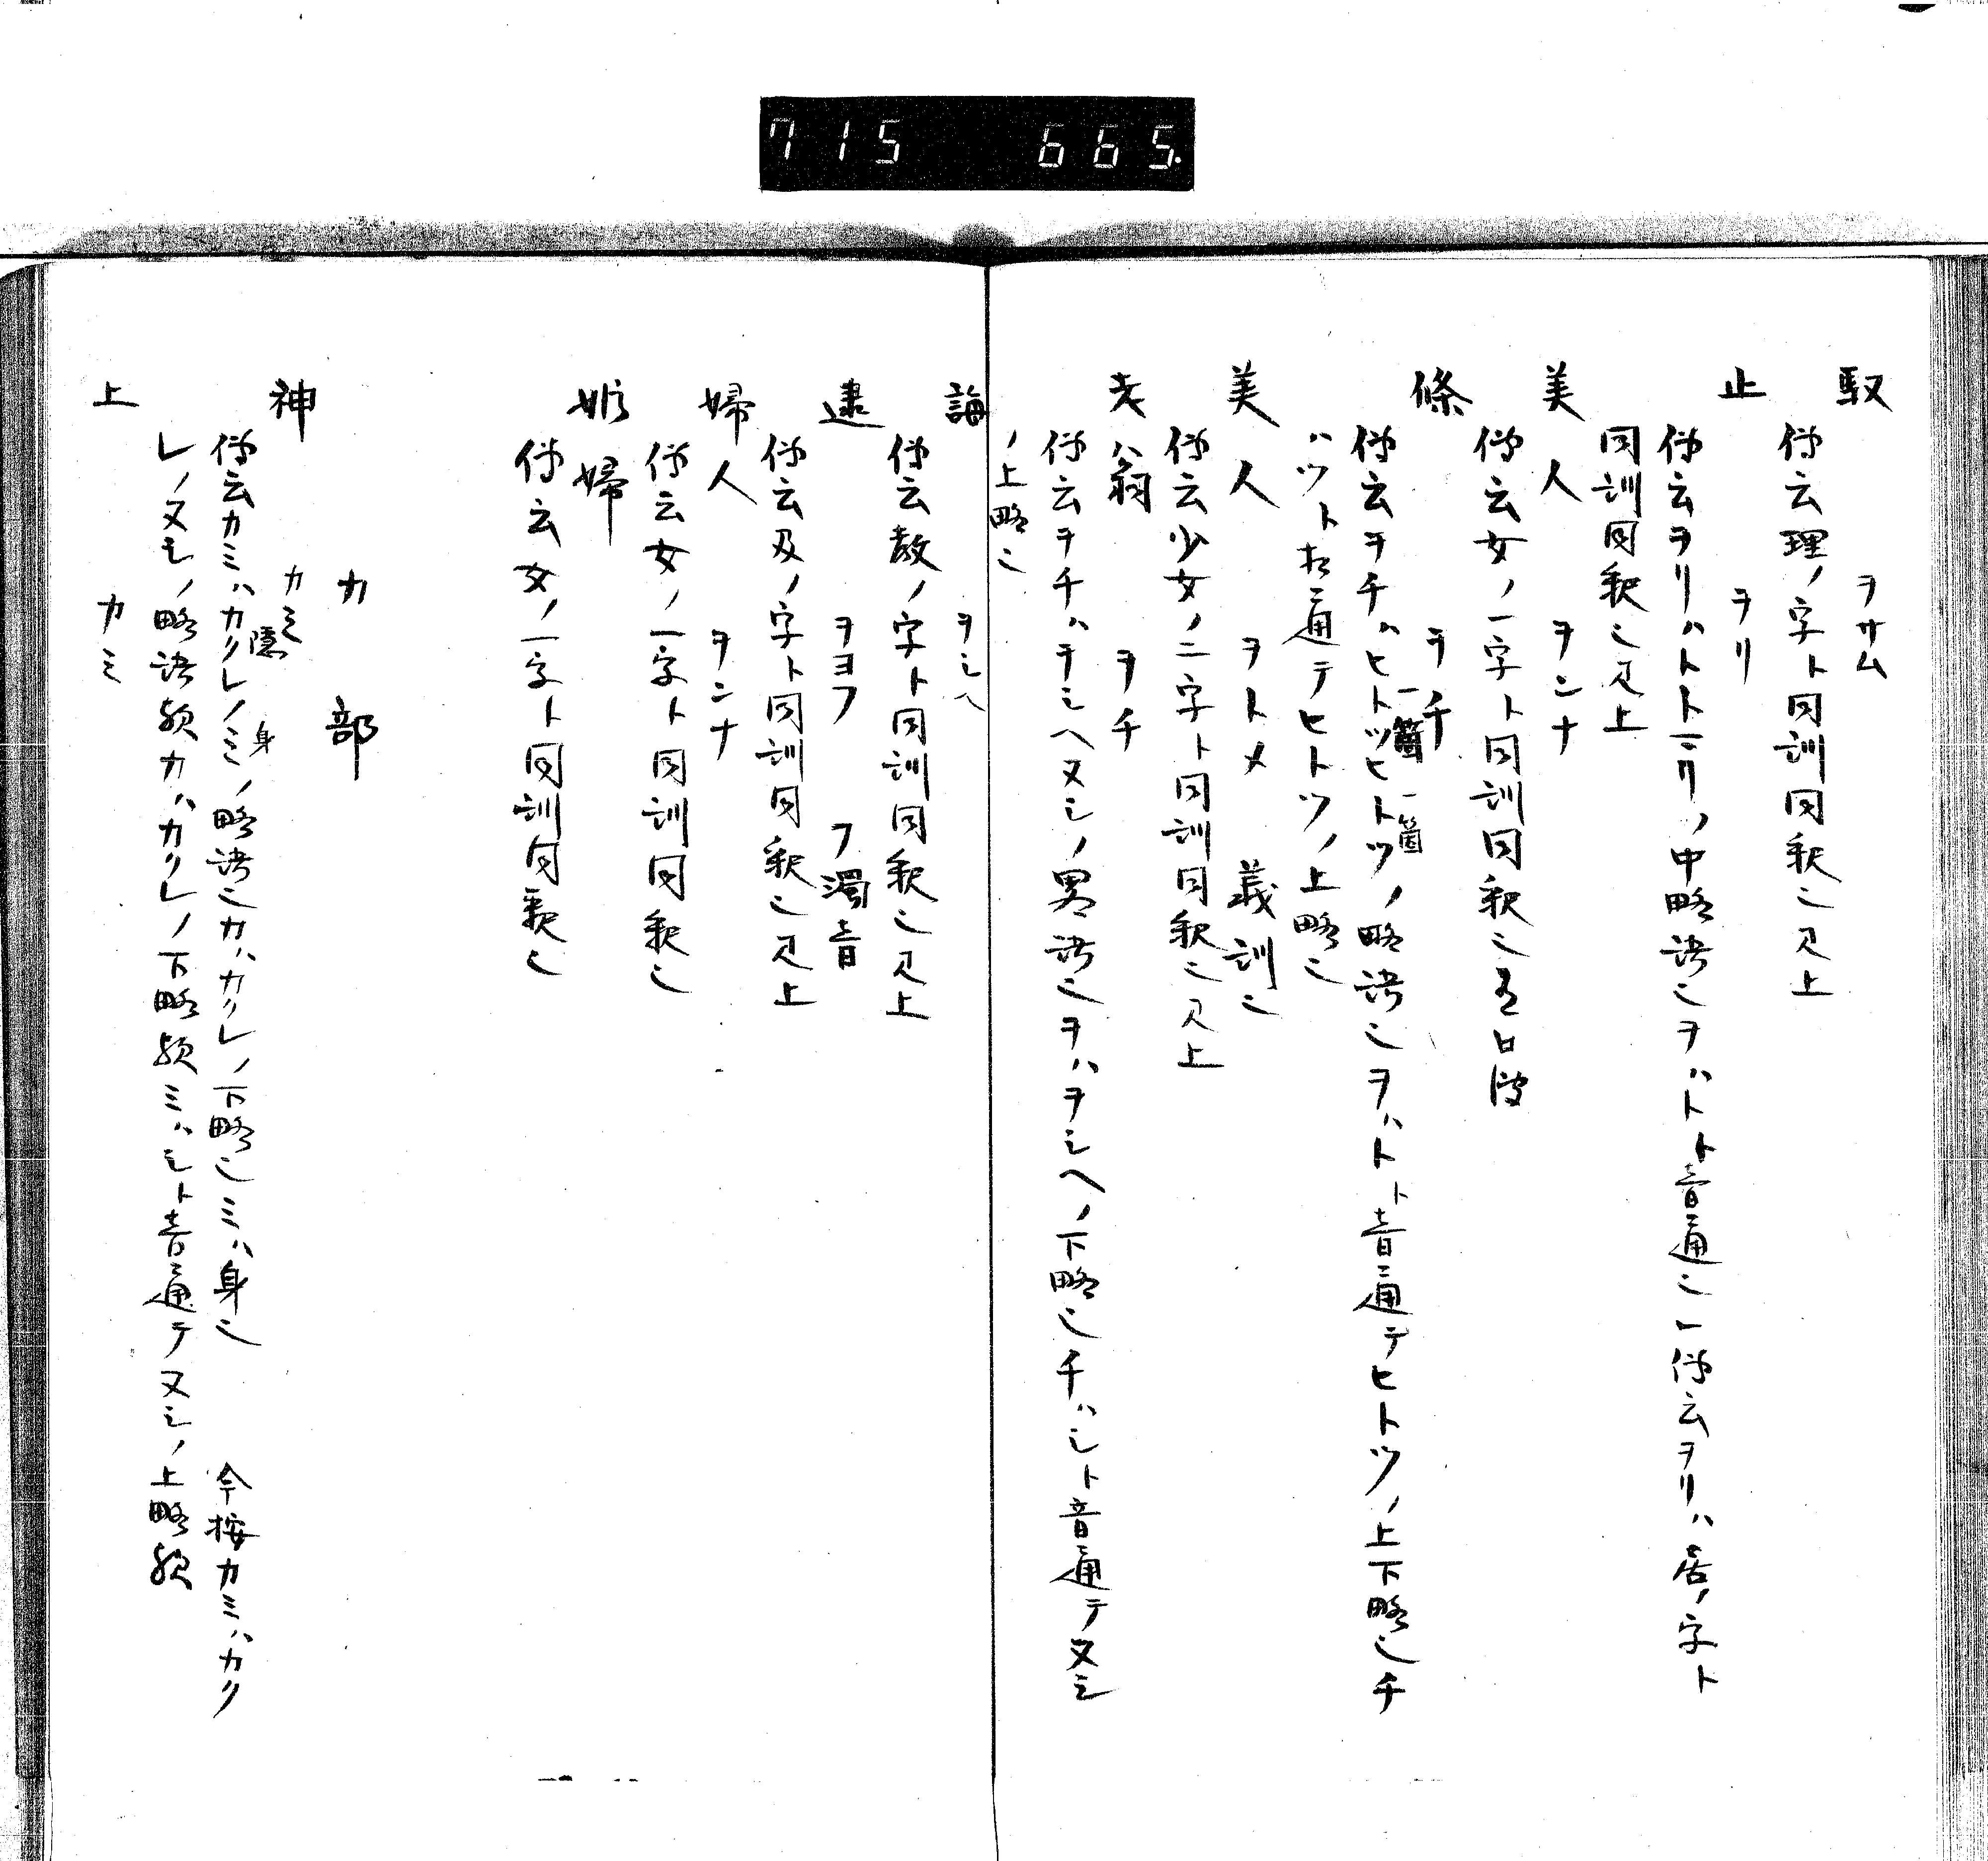 715 665.
馭 ヲサム
傳云理ノ字ト同訓同釈也見上
止 ヲリ
傳云ヲリハトトマリノ中略語也ヲハトト音通也一傳云ヲリハ居ノ字ト
同訓同釈也見上
美人 ヲンナ
傳云女ノ一字ト同訓同釈也
條 ヲチ
一箇 一箇
傳云ヲチハヒトツヒトツノ略語也ヲハトト音通テヒトツノ上下略也チ
ハツト相通テヒトツノ上略也
美人 ヲトメ 義訓也
傳云少女ノ二字ト同訓同釈也見上
老翁 ヲチ
傳云ヲチハヲシヘヌシノ畧語也ヲハヲシヘノ下略也チハシト音通テヌシ
ノ上略也
誨 ヲシヘ
傳云教ノ字ト同訓同釈也見上
逮 ヲヨフ フ濁音
傳云及ノ字ト同訓同釈也見上
婦人 ヲンナ
傳云女ノ一字ト同訓同釈也
婦
傳云女ノ一字ト同訓同釈也
カ部
神 カミ
隱 身
傳云カミハカクレノミノ略語也カハカクレノ下略也ミハ身也 今按カミハカク
レノヌシノ略語歟カハカクレノ下略歟ミハシト音通テヌシノ上略歟
上 カミ